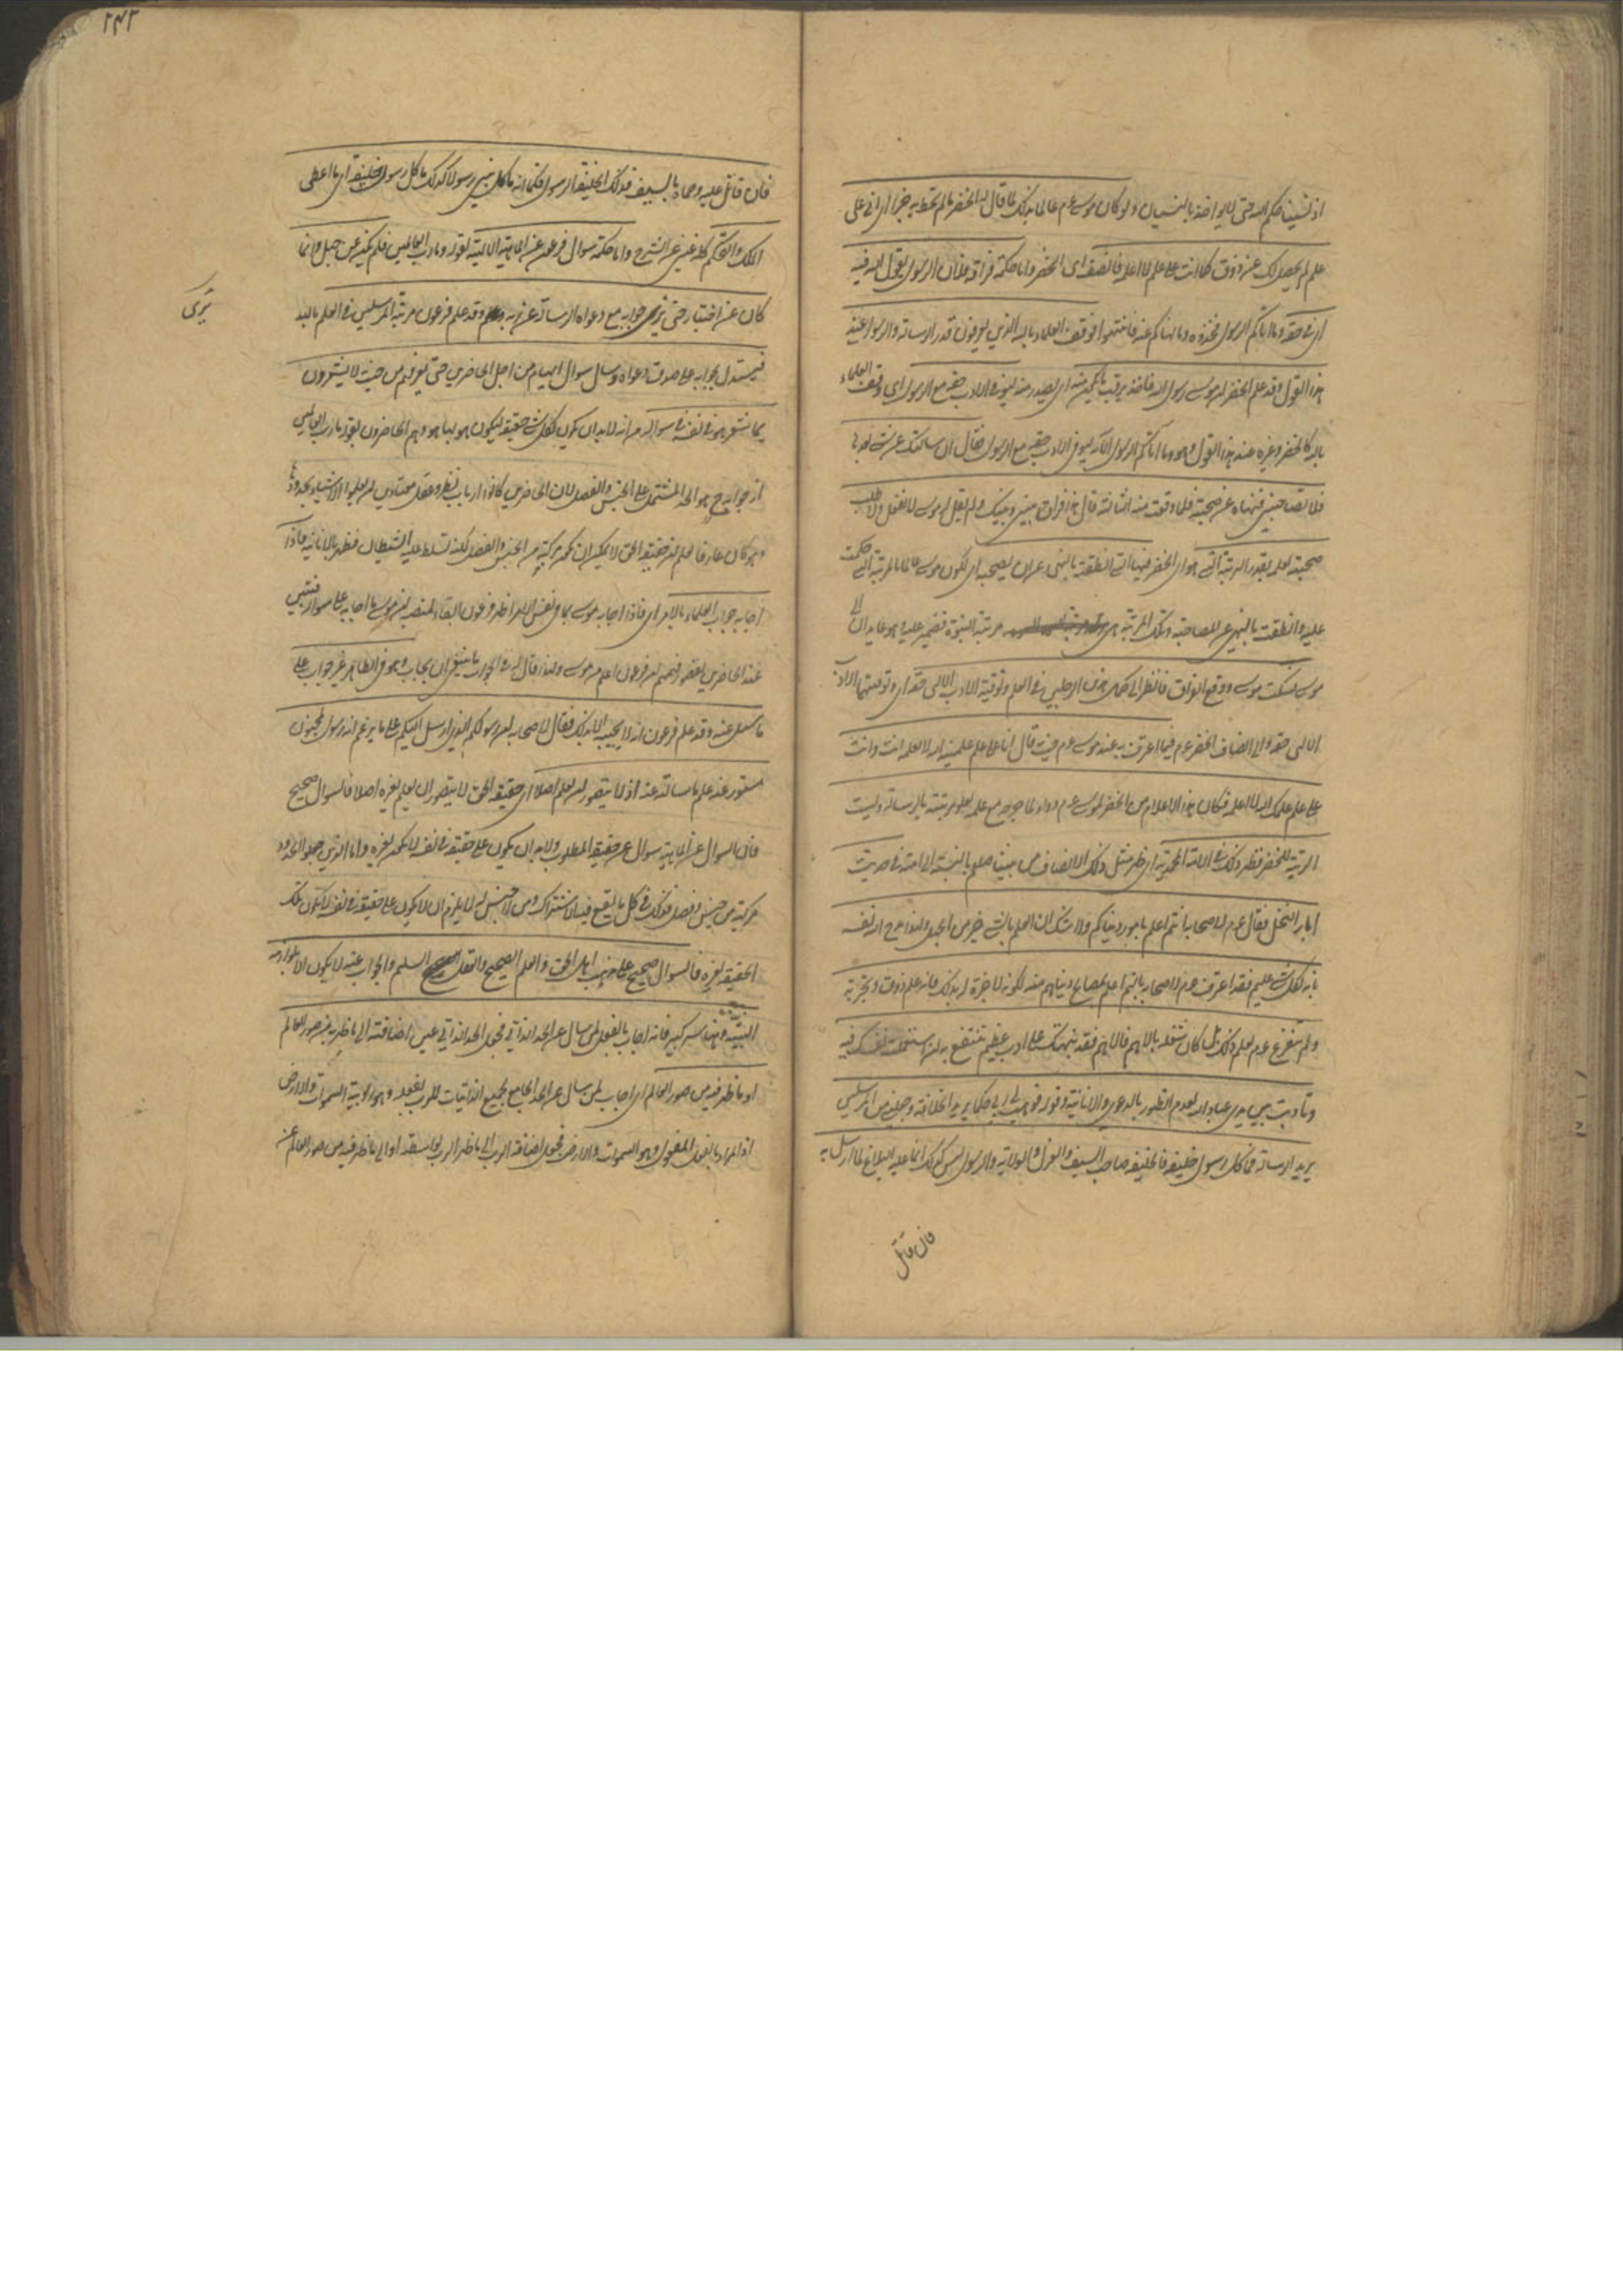 اذ نسينا حكم الله حتى لا يواخذ بالنسيان ولو كان موسى عم عالما بذلك لما قال له الخضر ما لم تحط به خبرا اى انى على
علم لم يحصل لك عن ذوق كما انت على علم لا اعلمه فانصف اى الخضر واما حكمة فراقه فلان الرسول يقول الله فيه
اى فى حقه وما اتاكم الرسول فخذوه وما نهاكم عنه فانتهوا فوقف العلماء بالله الذين يعرفون قدر الرسالة والرسول عند
هذا القول وقد علم الخضر ان موسى رسول الله فاخذ يرقب ما يكون منه اى يصدر منه ليوفى الادب حقه مع الرسول اى وقف العلماء
بالله كالخضر وغيره عند هذا القول وهو وما آتاكم الرسول الآية ليوفى الادب حقه مع الرسول فقال ان سالتك عن شئ بعدها
فلا تصاحبنى فنهاه عن صحبته فلما وقعت منه الثالثة قال هذا فراق بينى وبينك ولم يقل له موسى لا تفعل ولا طلب
صحبته لعلمه بقدر الرتبة التى هو اى الخضر فيها التى انطقته بالنهى عن ان يصحبه اى لكون موسى عالما بالمرتبة التى حكمت
عليه وانطقت بالنهى عن المصاحبة وتلك المرتبة هى مرتبة النبوة فضمير عليه وهو عايدان الى
موسى فسكت موسى ووقع الفراق فانظر الى كمال هذين الرجلين فى العلم وتوفية الادب الالهى حقه اى وتوفيتهما الادب
الالهى حقه والى انصاف الخضر عم فيما اعترف به عند موسى عم حيث قال انا على علم علمنيه الله لا تعلمه انت وانت
على علم علمك الله لا اعلمه فكان هذا الاعلام من الخضر لموسى عم دواء لما جرحه مع علمه بعلو مرتبته بالرسالة وليست
الرتبة للخضر فظهر ذلك فى الامة المحمدية اى ظهر مثل ذلك الانصاف من نبينا صلعم بالنسبة الى امته فى حديث
ابار النخل فقال عم لاصحابه انتم اعلم بامور دنياكم ولا شك ان العلم بالشئ خير من الجهل به ولهذا مدح الله نفسه
بانه بكل شئ عليم فقد اعترف عم لاصحابه بانهم اعلم بمصالح دنياهم منه لكونه لا خبرة له بذلك فانه علم ذوق وتجربة
ولم يتفرغ عم لعلم ذلك بل كان شغله بالاهم فالاهم فقد نبهتك على ادب عظيم تنتفع به ان استعملت نفسك فيه
وتادبت بين يدى عباد الله لعدم الظهور بالدعوى والانانية وقوله فوهب لى ربى حكما يريد الخلافة وجعلنى من المرسلين
يريد الرسالة فما كل رسول خليفة فالخليفة صاحب السيف والعزل والولاية والرسول ليس كذلك انما عليه البلاغ لما ارسل به
فان قاتل
٢٤٢
فان قاتل عليه وحماه بالسيف فذلك الخليفة الرسول فكما انه ما كل نبى رسولا كذلك ما كل رسول خليفة اى ما اعطى
الملك والتحكم كله غنى عن الشرح واما حكمة سوال فرعون عن الماهية الالهية بقوله وما رب العالمين فلم يكن عن جهل وانما
كان عن اختبار حتى يرى جوابه مع دعواه الرسالة عن ربه وقد علم فرعون مرتبة المرسلين فى العلم بالله
يرى
فيستدل بجوابه على صدق دعواه وسال سوال ايهام من اجل الحاضرين حتى يعرفهم من حيث لا يشعرون
بما شعر هو فى نفسه فى سواله من انه لا بد ان يكون لكل شئ حقيقة ليكون هو بها هو وهم الحاضرون بقوله ما رب العالمين
ان جوابه ح هو الحد المشتمل على الجنس والفصل لان الحاضرين كانوا ارباب نظر وعقل معتادين لم يعلموا الاشياء بحدودها
وهو كان عارفا يعلم ان حقيقة الحق لا يمكن ان تكون مركبة من الجنس والفصل لكنه تسلط عليه الشيطان فظهر بالانانية فاذا
اجابه جواب العلماء بالامر اى فاذا اجابه موسى بما فى نفس الامر اظهر فرعون ابقاء لمنصبه ان موسى ما اجابه على سواله فتبين
عند الحاضرين لقصور فهمهم ان فرعون اعلم من موسى ولهذا قال له فى الجواب ما ينبغى ان يجاب وهو فى الظاهر غير جواب على
ما سئل عنه وقد علم فرعون انه لا يجيبه الا بذلك فقال لاصحابه ان رسولكم الذى ارسل اليكم على ما يزعم انه رسول لمجنون
مستور عنه علم ما سالته عنه اذ لا يتصور ان يعلم اصلا اى حقيقة الحق لا يتصور ان يعلم لغيره اصلا فالسوال صحيح
فان السوال عن الماهية سوال عن حقيقة المطلوب ولا بد ان يكون على حقيقة فى نفسه لا تكون لغيره واما الذين جعلوا الحدود
مركبة من جنس وفصل فذلك فى كل ما يقع فيه الاشتراك ومن لا جنس له لا يلزم ان لا يكون على حقيقة فى نفسه لا تكون تلك
الحقيقة لغيره فالسوال صحيح على مذهب اهل الحق والعلم الصحيح والعقل السليم والجواب عنه لا يكون الا بلوازمه
البينة وهنا سر كبير فانه اجاب بالفعل لمن سال عن الحد الذاتى فجعل الحد الذاتى عين اضافته الى ما ظهر به من صور العالم
او ما ظهر فيه من صور العالم اى اجاب لمن سال عن الحد الجامع لجميع الذاتيات للرب بفعله وهو ربوبية السموات والارض
اذ المراد بالفعل المفعول وهو السموات والارض فجعل اضافة الرب الى ما ظهر الرب بواسطته او الى ما ظهر فيه من صور العالم عن